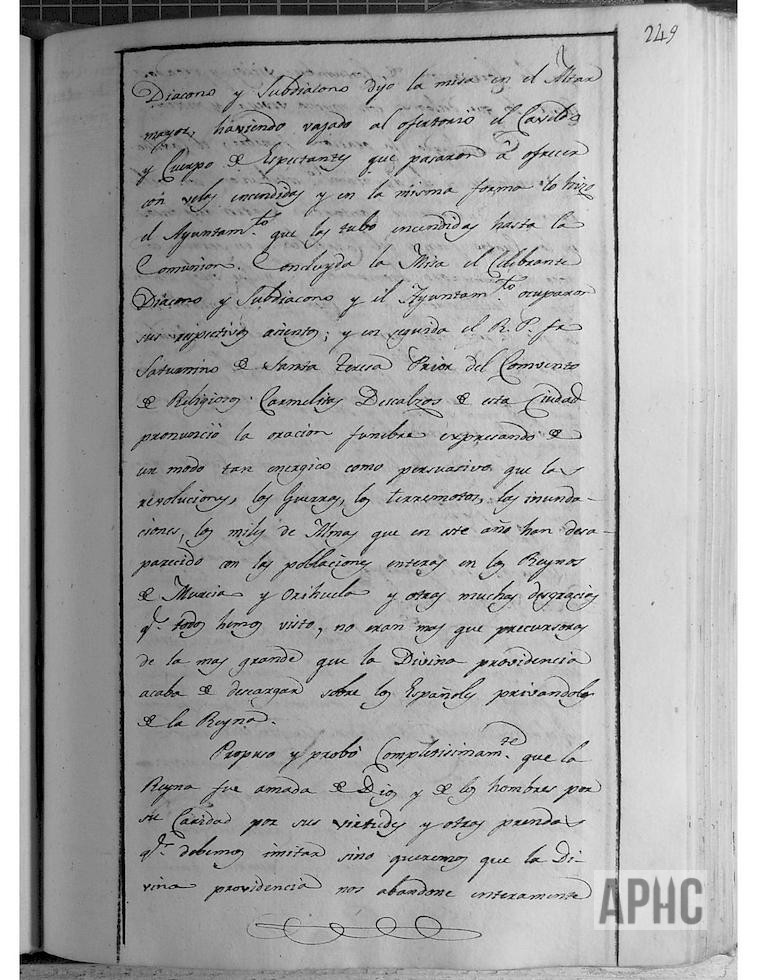 249
Diacono y Subdiacono dijo la misa en el Altar
mayor, haviendo vajado al ofertorio el Cavildo
y Cuerpo de Espectantes que pasaron â ofrecer
con velas encendidas y en la misma forma lo hizo
el Ayuntam.to que las tubo encendidas hasta la
Comunion. Concluyda la Misa el Celebrante
Diacono y Subdiacono y el Ayuntam.to ocuparon
sus respectivos asientos; y en seguida el R. P. fr
Saturnino de Santa Teresa Prior del Convento
de Religiosos Carmelitas Descalzos de esta Ciudad
pronunció la oracion funebre expresando de
un modo tan energico como persuasivo que las
revoluciones, las Guerras, los terremotos, las inunda-
ciones, los miles de Almas que en este año han desa-
parecido con las poblaciones enteras en los Reynos
de Murcia y Orihuela y otras muchas desgracias
q.e todos hemos visto, no eran mas que precursoras
de la mas grande que la Divina providencia
acaba de descargar sobre los Españoles privandoles
de la Reyna.
Propuso y probó Completisimam.te que la
Reyna fue amada de Dios y de los hombres por
su Caridad por sus virtudes y otras prendas
q.e debemos imitar sino queremos que la Di-
vina providencia nos abandone enteramente
APHC